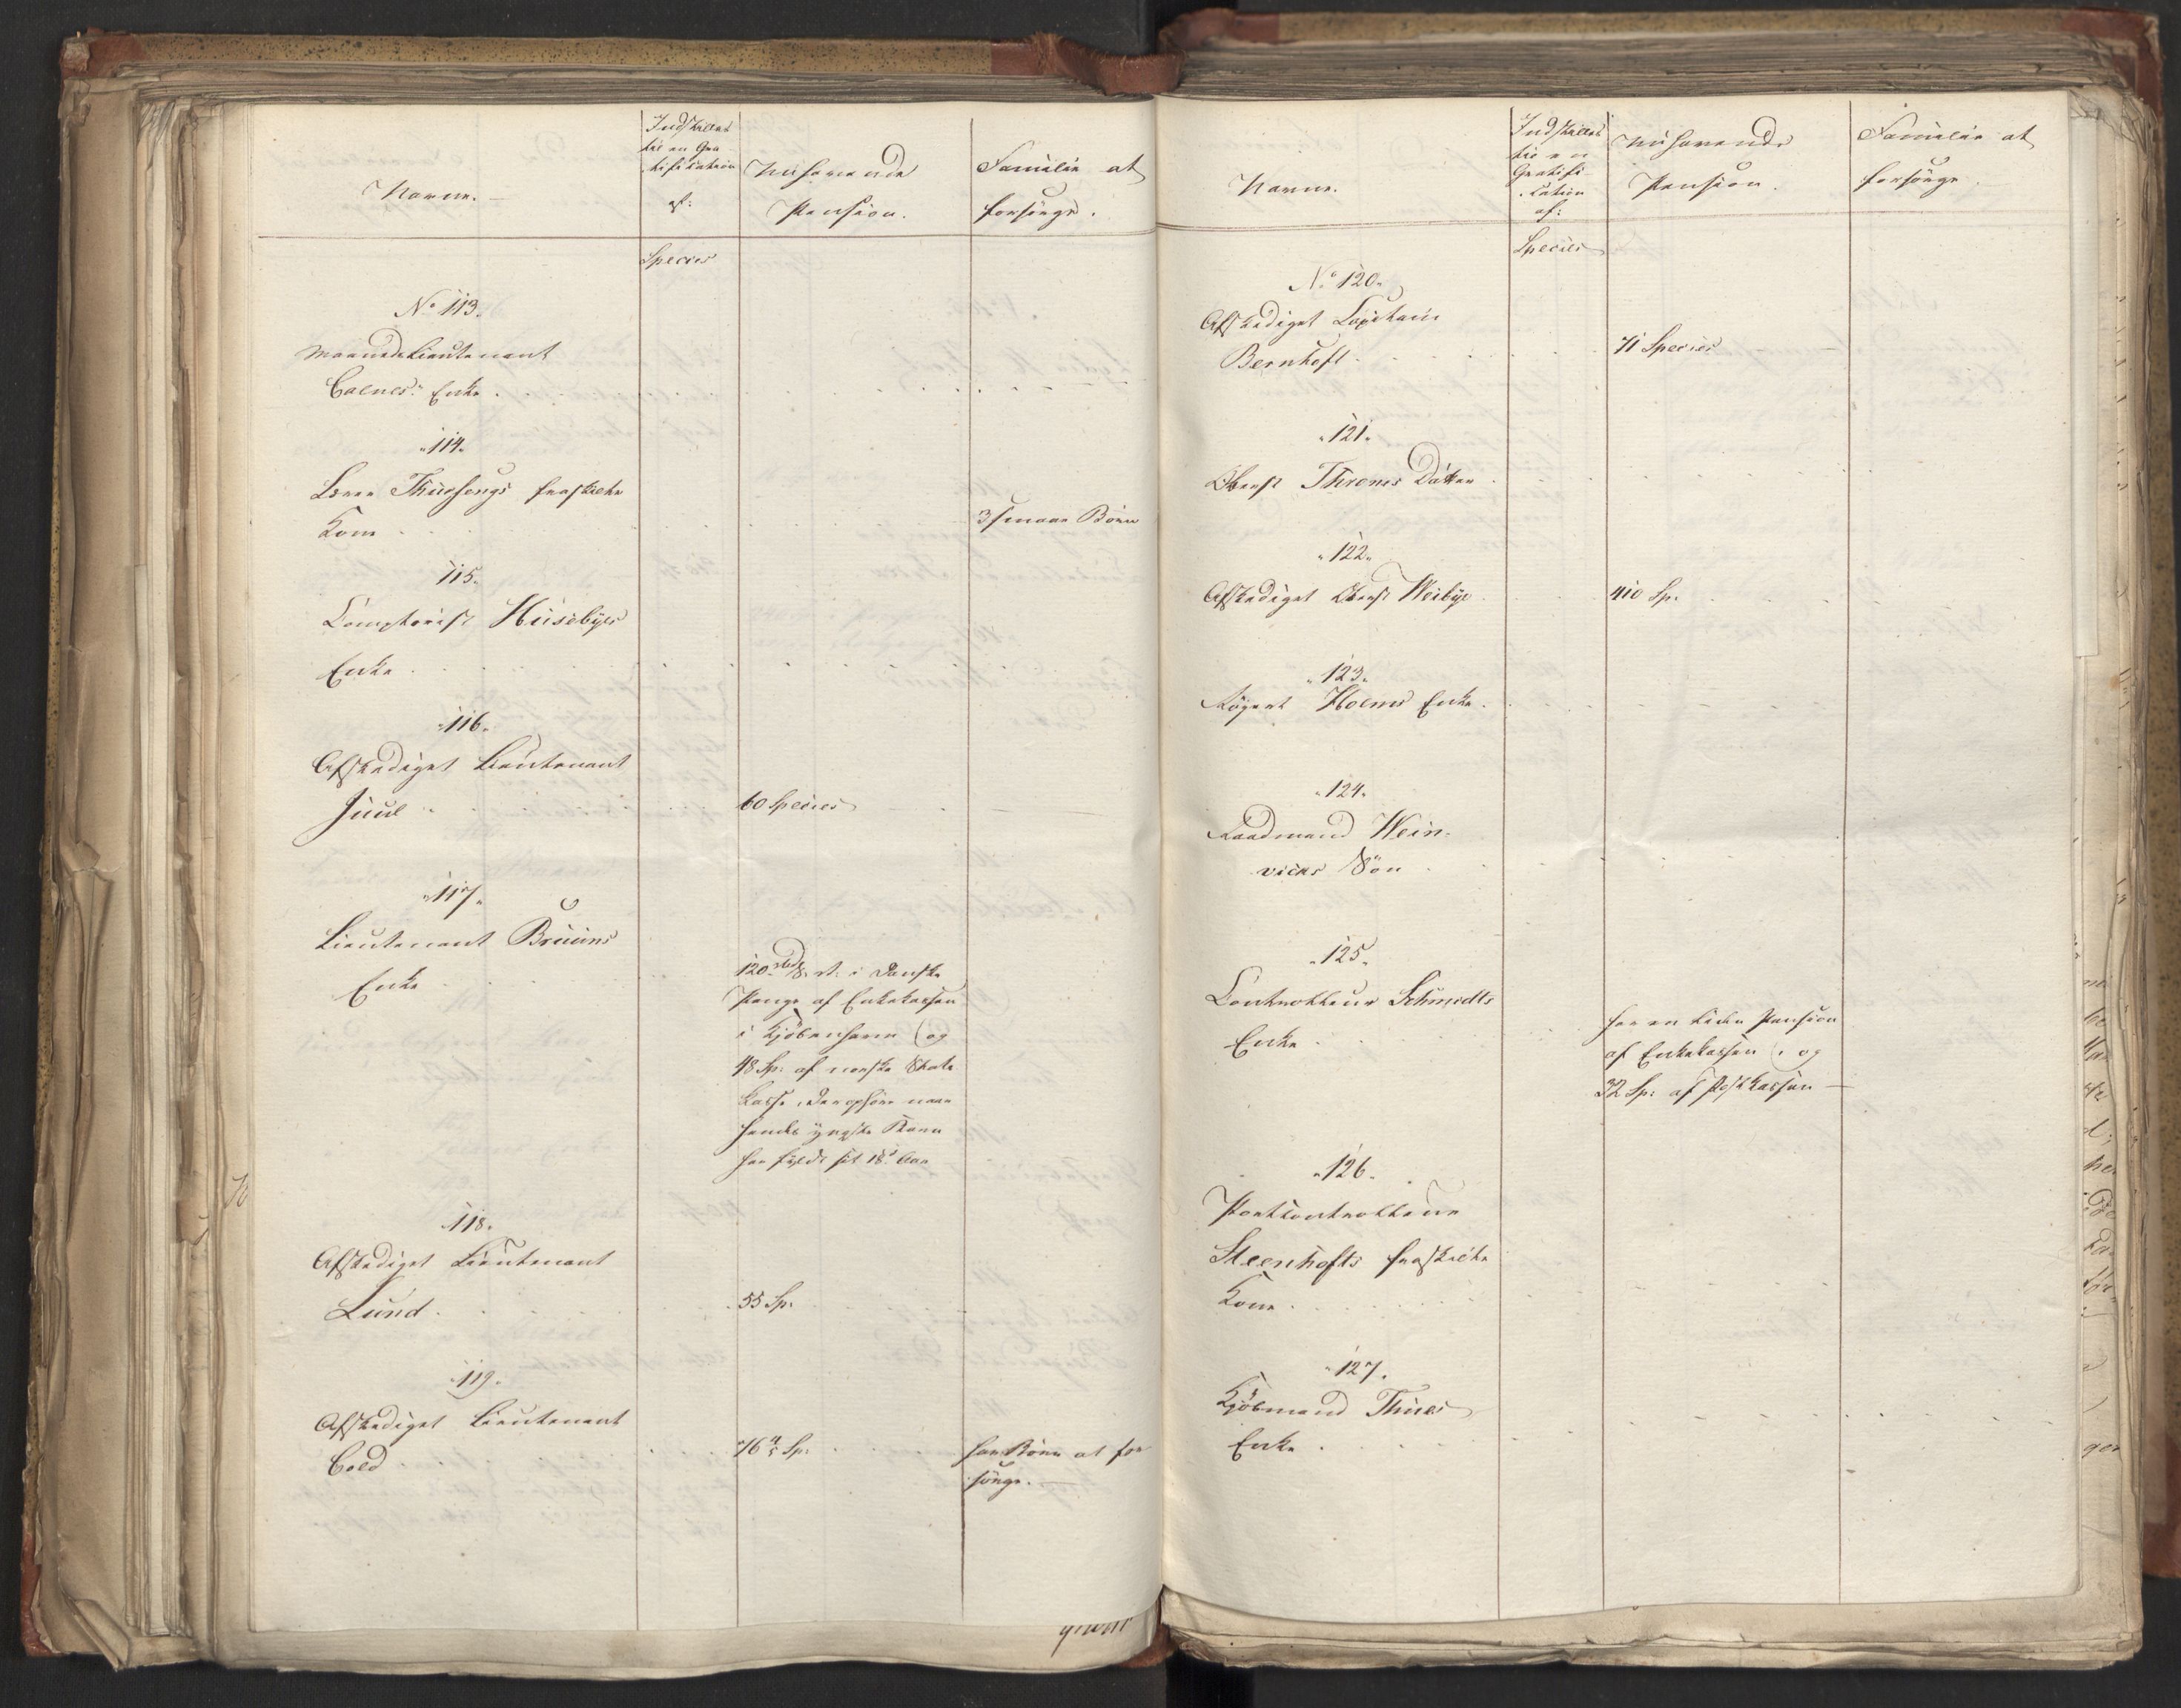 Navne.
Indstillet
til en Gra-
tifikation
af:
Nuhavende
Pension.
Familie at
forsörge.
Species
No 113.
Maanedslieutenant
Colnes' Enke
114.
Thuesengs fraskilte
Kone
3 smaae Börn
115.
Comptorist Husebyes
Enke
116.
Afskediget Lieutenant
Juul
60 Species
117.
Lieutenant Bruuns
Enke
120 rbd. S. v. i danske
Penge af Enkekassen
i Kjöbenhavn (og
48 Sp: af norske Stats
Kasse, der ophöre naar
hendes yngste Barn
har fyldt sit 18de Aar
118.
Afskediget Lieutenant
Lund
55 Sp.
119.
Afskediget Lieutenant
Cold
76 4/5 Sp:
har Börn at for
sörge.
Navne.
Indstillet
til en
Gratifi
kation
af:
Nuhavende
Pension.
Familie at
forsörge.
Species
No 120.
Afskediget Capitain
Bernhoft
71 Species
121.
Oberst Throns Datter
122.
Afskediget Oberst Weibye
410 Sp.
123.
Holms Enke.
124.
Raadmand Wein-
vicks Sön
125.
Controlleur Schmidts
Enke
har en liden Pension
af Enkekassen, og
32 Sp: af Postkassen
126.
Postcontrolleur
Steenhofts fraskilte
Kone
127.
Kjöbmand Thues
Enke